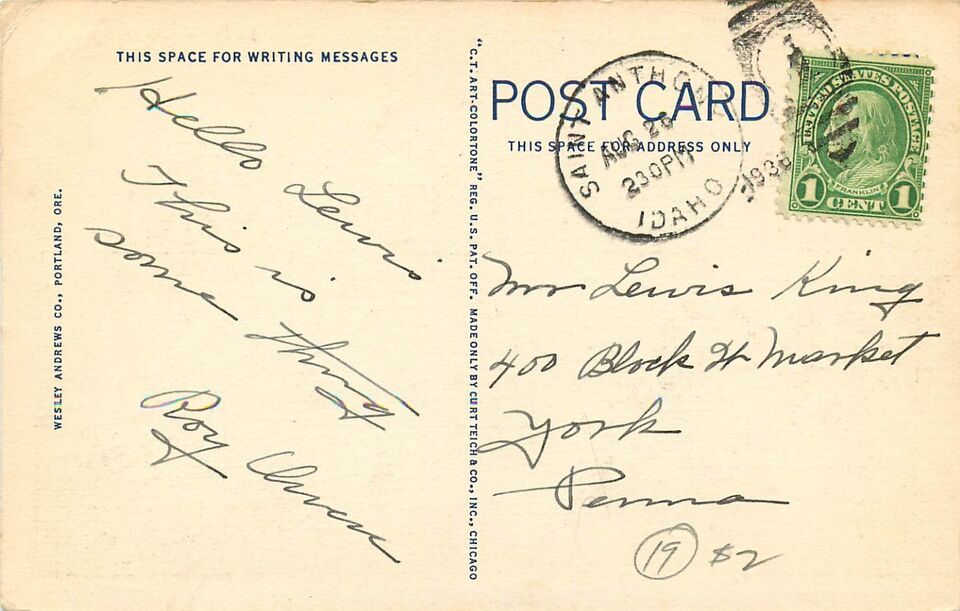 THIS SPACE FOR WRITING MESSAGES
Hello Lewis
This is
some thing
Roy
WESLEY ANDREWS CO., PORTLAND, ORE.
"C.T. ART-COLORTONE" REG. U.S. PAT. OFF. MADE ONLY BY CURT TEICH & CO., INC., CHICAGO
POST CARD
THIS SPACE FOR ADDRESS ONLY
SAINT ANTHONY
AUG 26
230PM
IDAHO
UNITED STATES POSTAGE
FRANKLIN
1 CENT 1
Mr Lewis King
400 Block W Market
York
Penna
19 $2